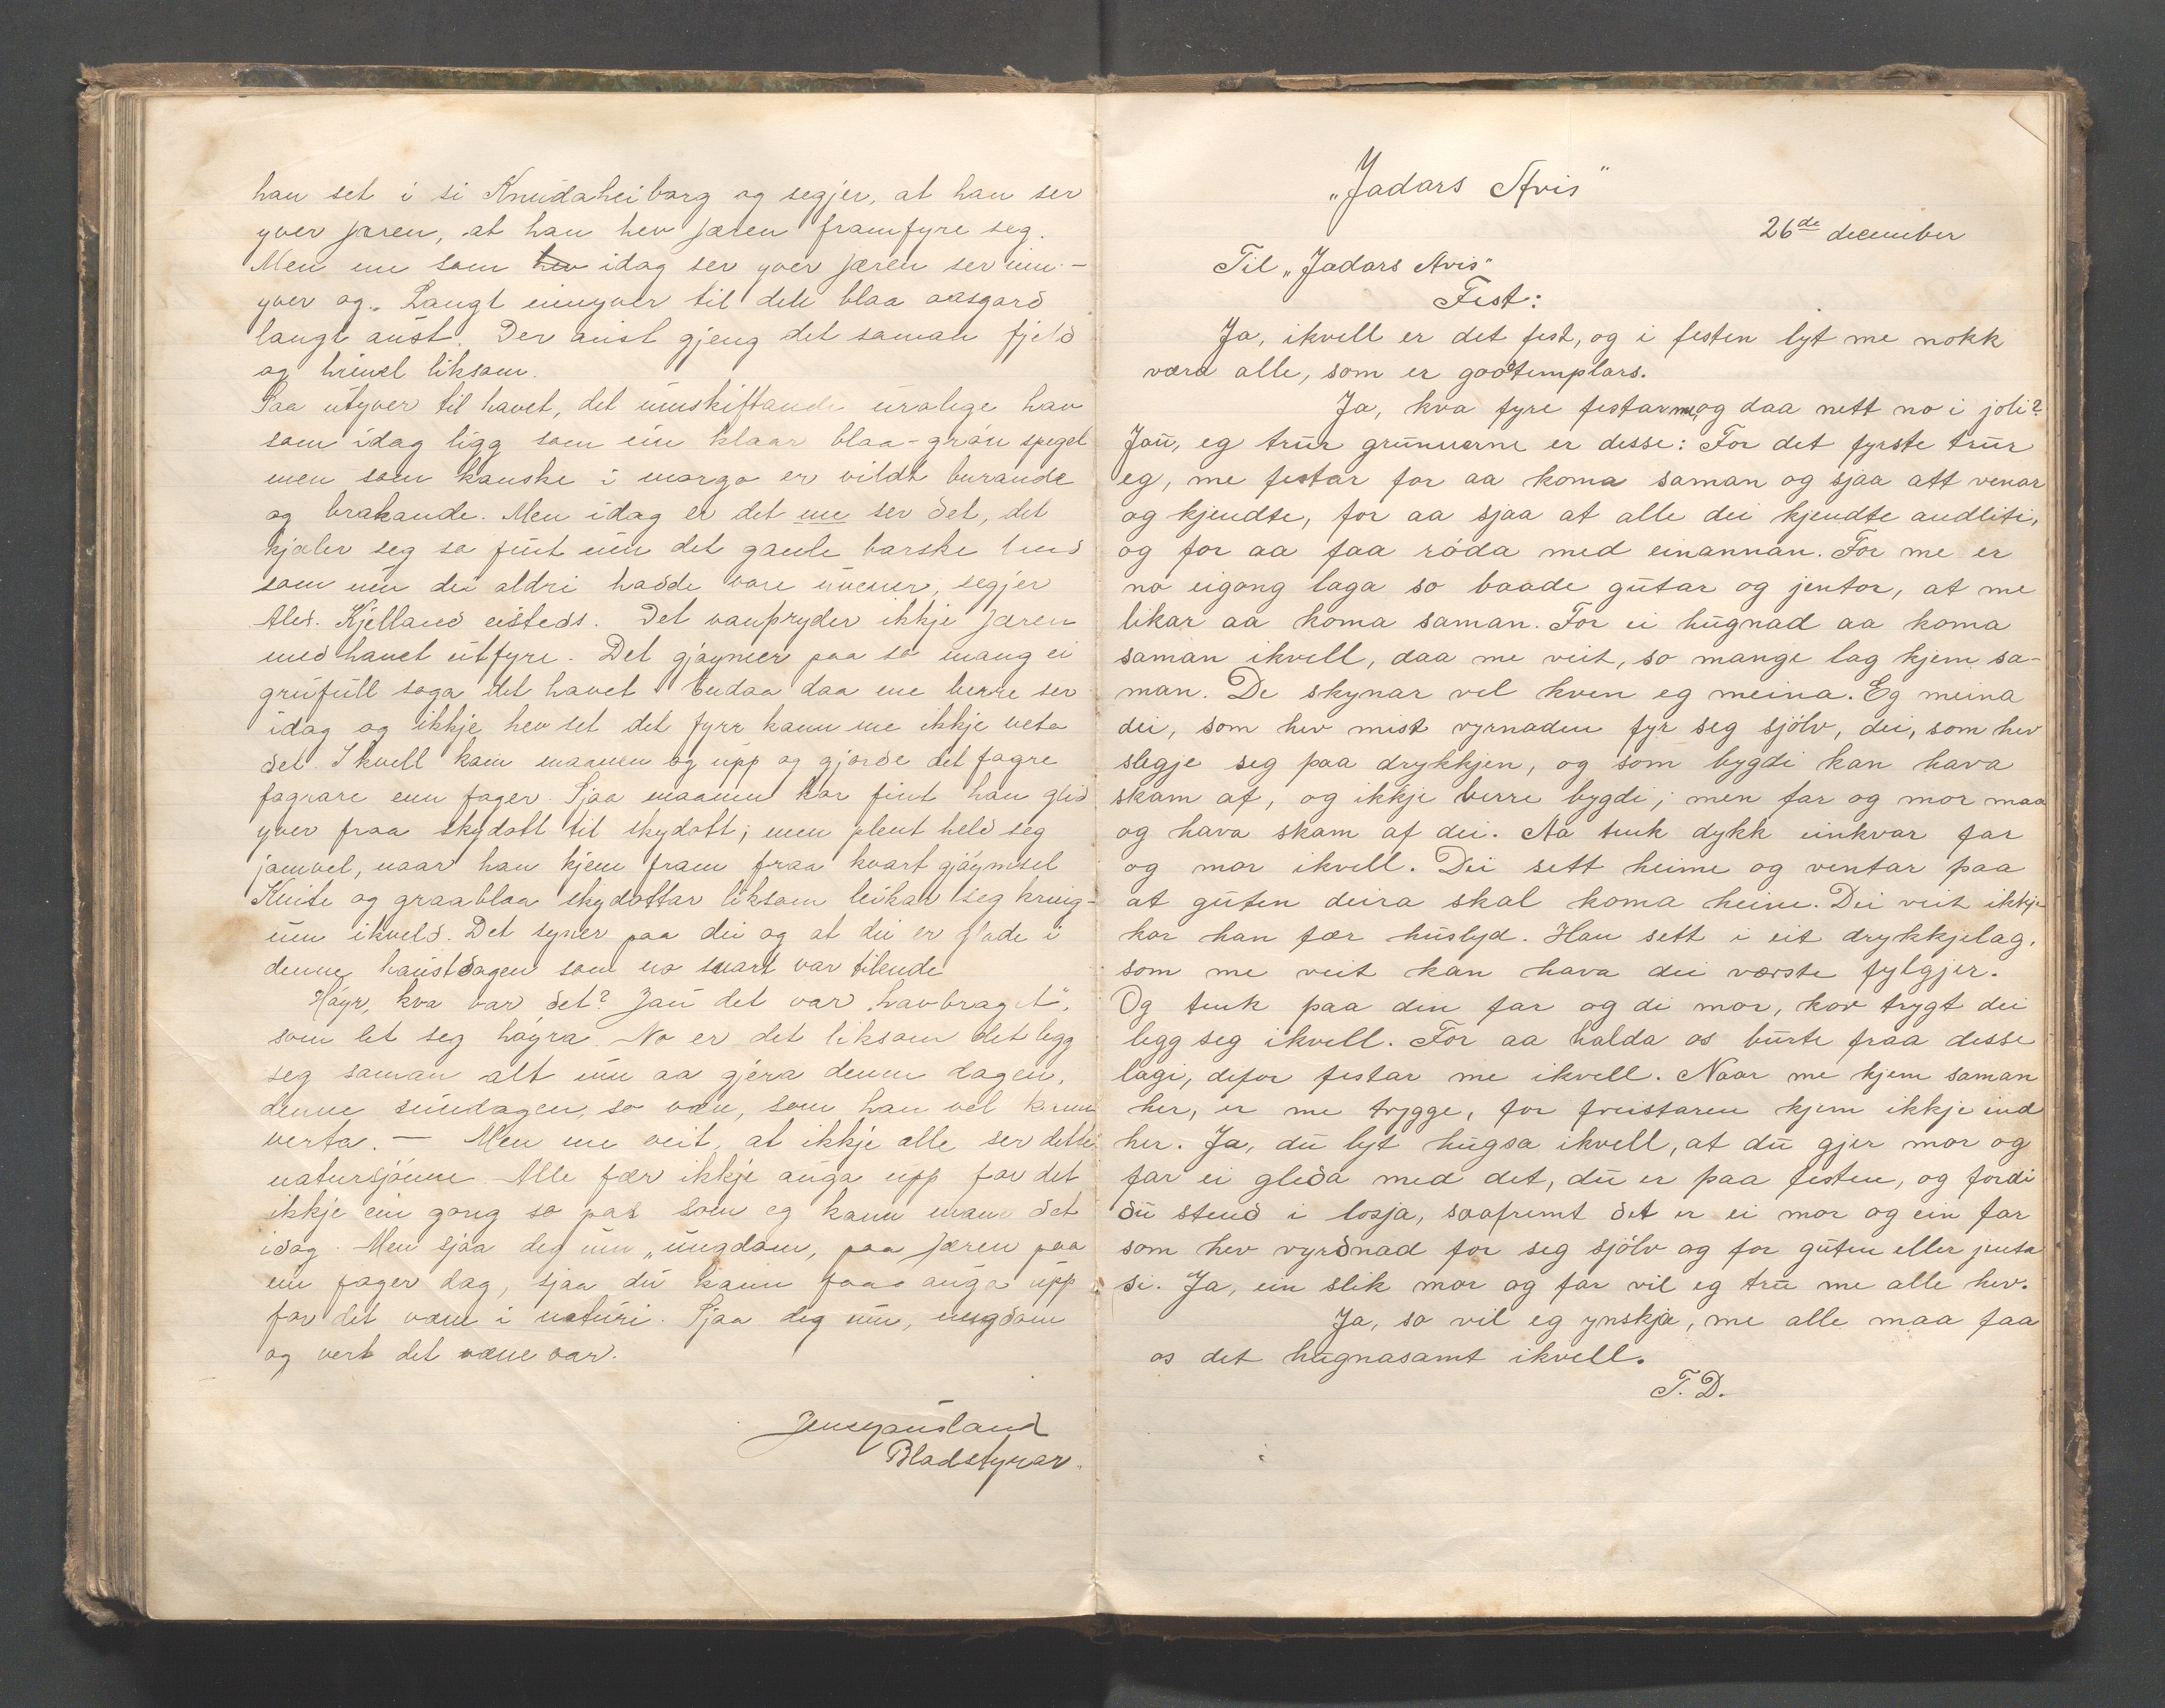 han set i si Knudaheiborg og segjer, at han ser
yver Jæren, at han hev Jæren framfyre seg.
Men me som hev idag ser yver Jæren ser inn-
yver og. Langt innyver til dei blaa aasgard
langt aust. Der aust gjeng det saman fjeld
og himel liksom.
Saa utyver til havet, det umskiftande uralige hav
som idag ligg som ein klaar blaa-grön spegel
men som kanske i morgo er vildt burande
og brakande. Men idag er det me ser det, det
kjæler seg so fint um det gamle barske land
som um dei aldri hadde vore uvener, segjer
Alex. Kjelland eisteds. Det vanpryder ikkje Jæren
med havet utfyre. Det gjöymer paa so mang ei
grufull soga det havet. Endaa daa me berre ser
idag og ikkje hev set det fyrr kann me ikkje veta
det. Ikvell kom maanen og upp og gjorde det fagre
fagrare enn fager. Sjaa maanen kor fint han glid
yver fraa skydott til skydott; men plent held seg
jamvel, naar han kjem fram fraa kvart gjöymsel
Kvite og graablaa skydottar liksom leikar seg kring-
um ikveld. Det syner paa dei og at dei er glade i
denne haustdagen som no snart var tilende
Höyr, kva var det? Jau det var "havbraget",
som let seg höyra. No er det liksom det legg
seg saman alt um aa gjera denne dagen,
denne sundagen, so væn, som han vel kunn
verta. — Men me veit, at ikkje alle ser dette
natursjönne. Alle fær ikkje auga upp for det
ikkje ein gong so pas som eg kann mane det
idag. Men sjaa deg um „ungdom, paa Jæren paa
ein fager dag, sjaa du kann faa auga upp
for det væne i naturi. Sjaa deg um, ungdom
og vert det væne var.
Bladstyrar.
„Jadars Avis"
26de december
Til „Jadars Avis"
Fest:
Ja, ikvell er det fest, og i festen lyt me nokk
væra alle, som er goodtemplars.
Ja, kva fyre festar me, og daa nett no i joli?
Jau, eg trur grunnarne er desse: For det fyrste trur
eg, me festar for aa koma saman og sjaa att venar
og kjendte, for aa sjaa at alle dei kjendte andliti,
og for aa faa röda med einannan. For me er
no eigong laga so baade gutar og jentor, at me
likar aa koma saman. For ei hugnad aa koma
saman ikvell, daa me veit, so mange lag kjem sa-
man. De skynar vel kven eg meina. Eg meina
dei, som hev mist vyrnaden fyr seg sjölv, dei, som hev
slegje seg paa drykkjen, og som bygdi kan hava
skam af, og ikkje berre bygdi; men far og mor maa
og hava skam af dei. Aa tenk dykk einkvar far
og mor ikvell. Dei sett heime og ventar paa
at guten deira skal koma heim. Dei veit ikkje
kor han fær huslyd. Han sett i eit drykkjelag,
som me veit kan hava dei værste fylgjer.
Og tenk paa din far og di mor, kor trygt dei
legg seg ikvell. For aa halda os burte fraa desse
lagi, defor festar me ikvell. Naar me kjem saman
her, er me trygge, for freistaren kjem ikkje ind
her. Ja, du lyt hugsa ikvell, at du gjer mor og
far ei gleda med det, du er paa festen, og fordi
du stend i losja, saafremt det er ei mor og ein far
som hev vyrdnad for seg sjölv og for guten eller jenta
si. Ja, ein slik mor og far vil eg tru me alle hev.
Ja, so vil eg ynskja, me alle maa faa
os det hugnasamt ikvell.
T. D.